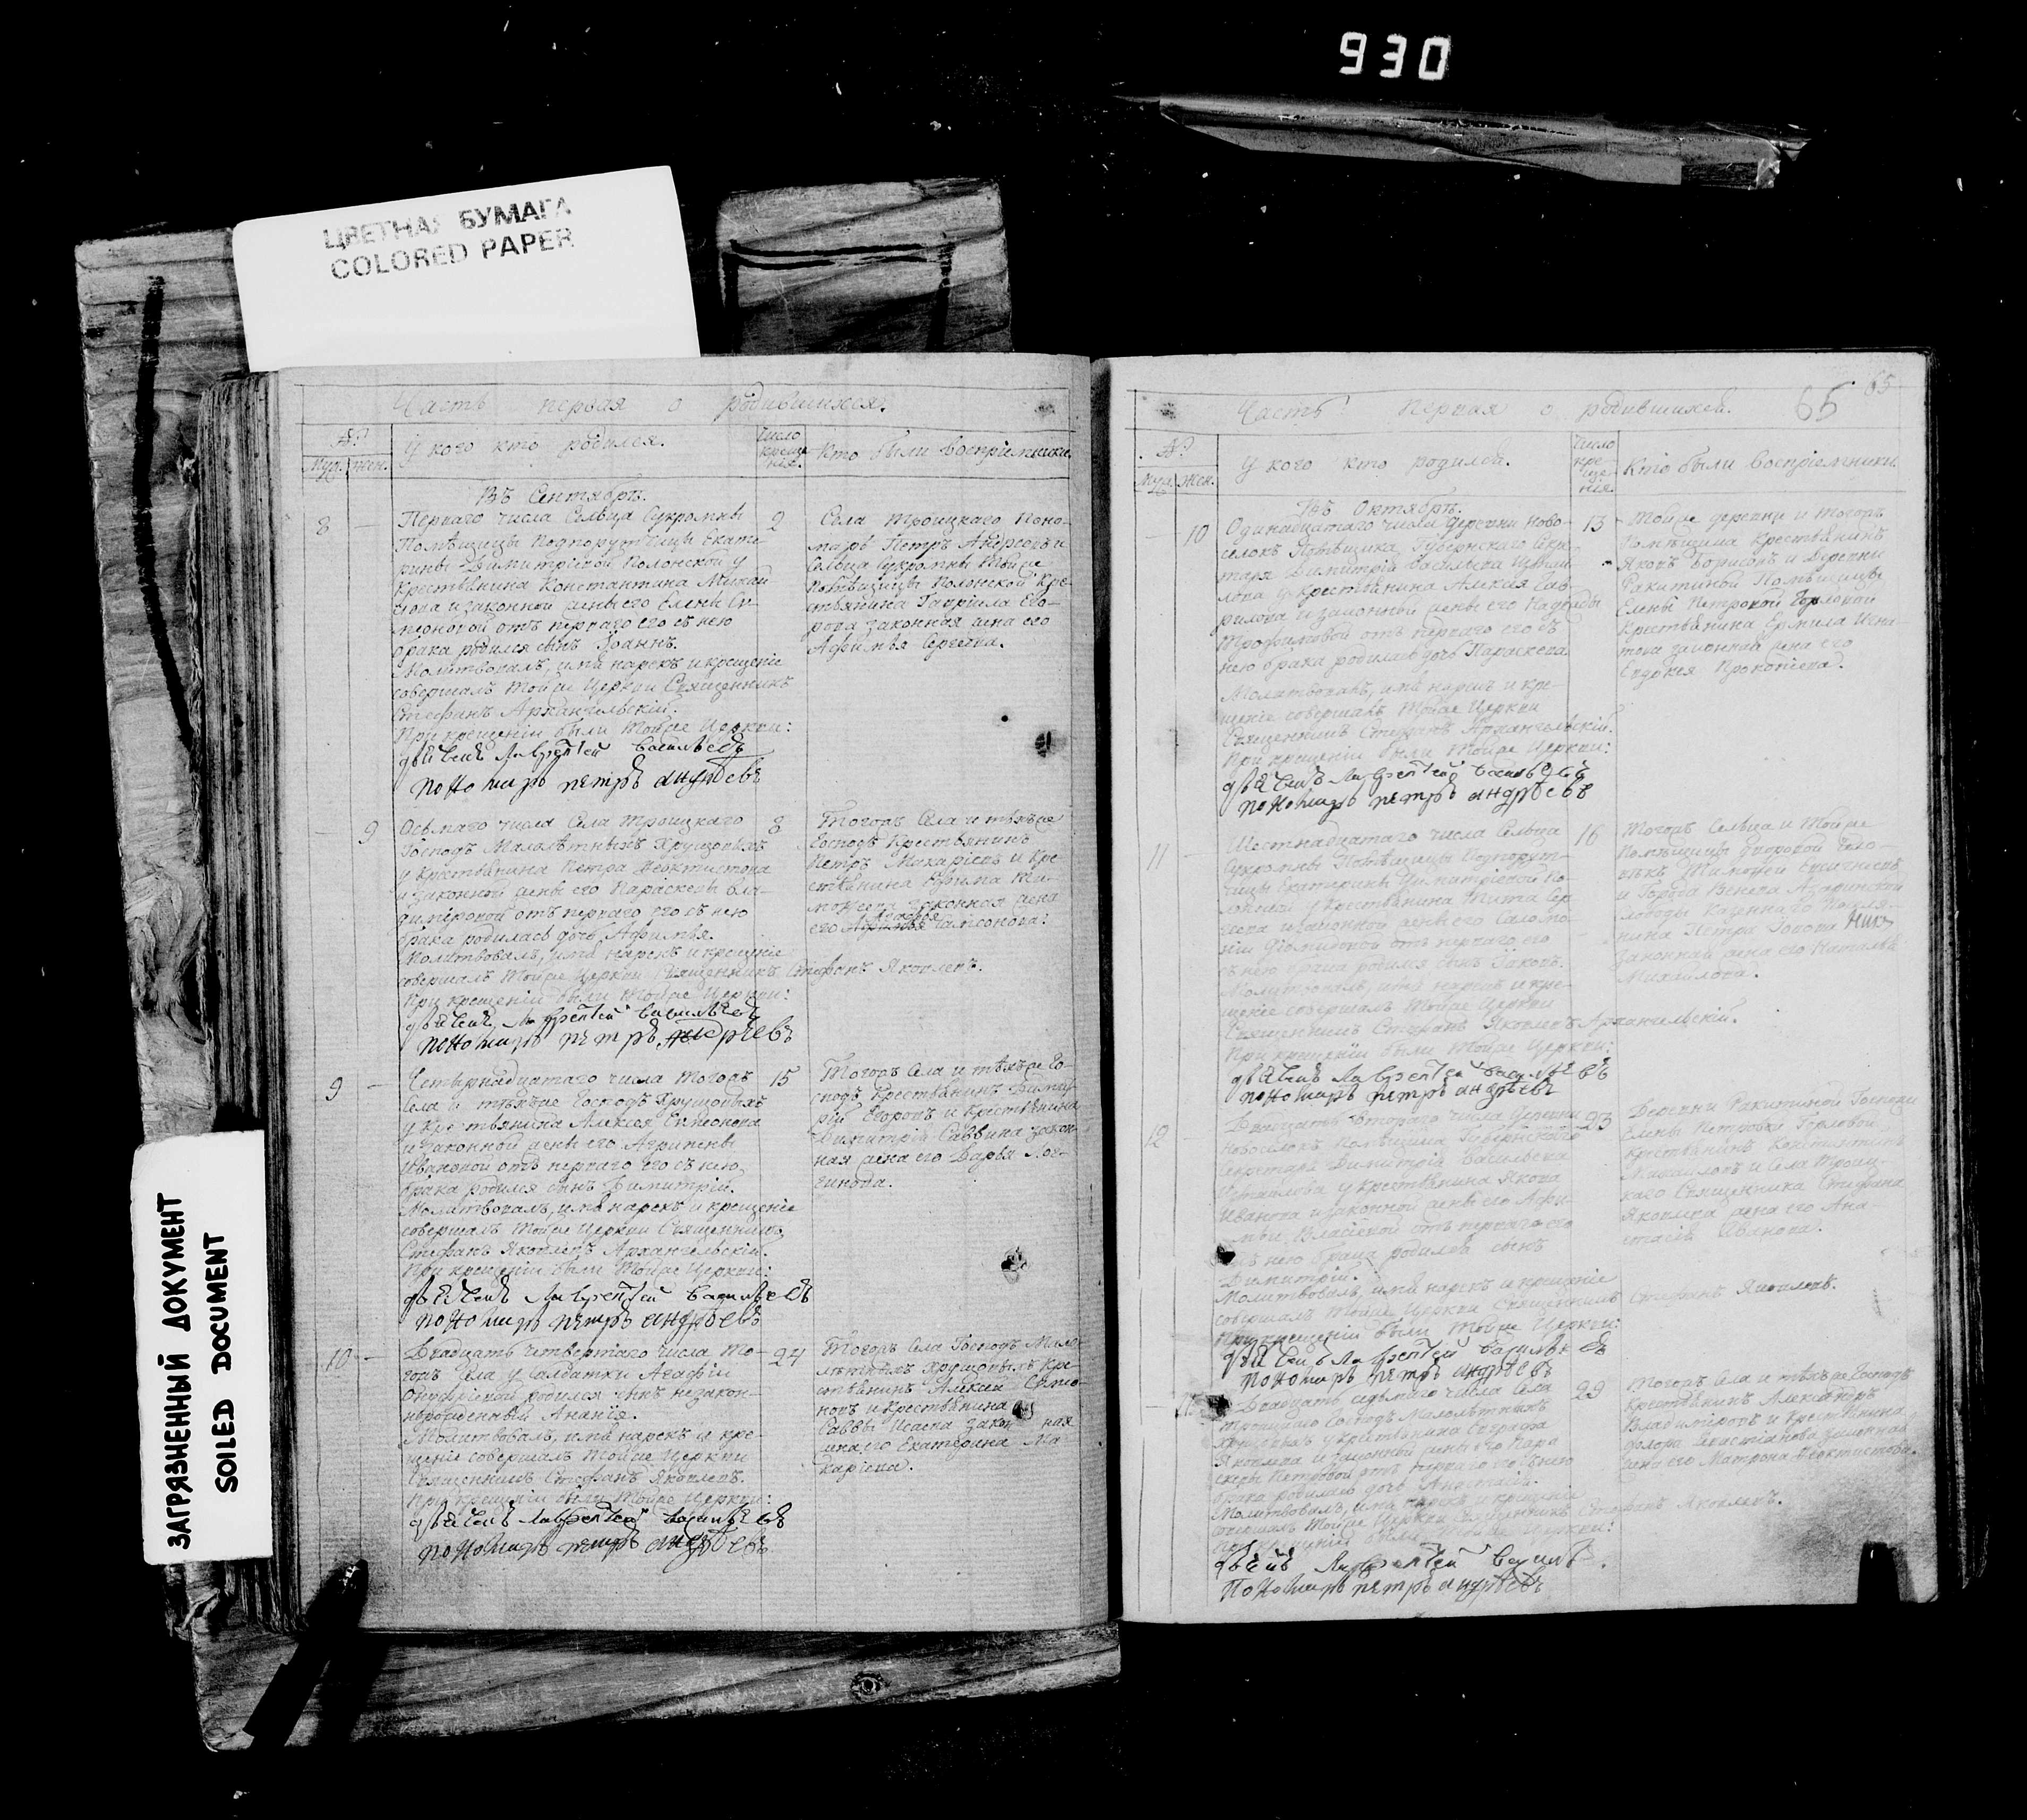 930
ЦВЕТНАЯ БУМАГА
COLORED PAPER
ЗАГРЯЗНЕННЫЙ ДОКУМЕНТ
SOILED DOCUMENT
Часть первая о родившихся.
№
Муж. Жен.
У кого кто родился.
Число крещенія.
Кто были воспріемники.
Въ Сентябрѣ.
8 — 2
Перваго числа Сельца Сукромны
Помѣщицы Подпорутчицы Екате-
рины Димитріевой Полонской у
Крестьянина Константина Михаи
лова и законной жены его Елены Си-
меоновой отъ перваго его съ нею
брака родился сынъ Іоаннъ.
Молитвовалъ, имя нарекъ и крещеніе
совершалъ Тойже Церкви Священникъ
Стефанъ Архангельскій.
При крещеніи были Тойже Церкви:
дьячекъ Лаврентей Васильевъ
пономарь петръ андреевъ
Села Троицкаго Поно-
марь Петръ Андреевъ и
Сельца Сукромны Тойже
Помѣщицы Полонской Кре-
стьянина Гавріила Его-
рова законная жена его
Афимья Сергеева.
— 9 8
Осьмаго числа Села Троицкаго
Господъ Малолѣтныхъ Хрущовыхъ
у Крестьянина Петра Феоктистова
и законной жены его Параскевы Вла-
диміровой отъ перваго его съ нею
брака родилась дочь Афимья.
Молитвовалъ, имя нарекъ и крещеніе
совершалъ Тойже Церкви Священникъ Стефанъ Яковлевъ.
При крещеніи были Тойже Церкви:
дьячекъ Лаврентей Васильевъ
пономарь петръ андреевъ
Тогожъ Села и тѣхъже
Господъ Крестьянинъ
Петръ Макаріевъ и Кре-
стьянина Ефима Ти-
мофеева законная жена
его Агафья Самсонова:
9 — 15
Четырнадцатаго числа Тогожъ
Села и тѣхъже Господъ Хрущовыхъ
у Крестьянина Алексея Симеонова
и законной жены его Агрипены
Ивановой отъ перваго его съ нею
брака родился сынъ Димитрій.
Молитвовалъ, имя нарекъ и крещеніе
совершалъ Тойже Церкви Священникъ
Стефанъ Яковлевъ Архангельскій.
При крещеніи были Тойже Церкви:
дьячекъ Лаврентей Васильевъ
пономарь петръ андреевъ
Тогожъ Села и тѣхъже Го-
сподъ Крестьянинъ Димит-
рій Егоровъ и Крестьянина
Димитрія Саввина закон-
ная жена его Дарья Лог-
гинова.
10 — 24
Двадцать четвертаго числа То-
гожъ Села у Салдатки Агафіи
родился сынъ незакон-
норожденный Ананія.
Молитвовалъ, имя нарекъ и кре-
щеніе совершалъ Тойже Церкви
Священникъ Стефанъ Яковлевъ.
При крещеніи были Тойже Церкви:
дьячекъ Лаврентей Васильевъ
пономарь петръ андреевъ
Тогожъ Села Господъ Мало-
лѣтныхъ Хрущовыхъ Кре-
стьянинъ Алексей Симео-
новъ и Крестьянина
Саввы Исаева законная
жена его Екатерина Ма-
каріева.
65
65
Часть первая о родившихся.
№
Муж. Жен.
У кого кто родился.
Число крещенія.
Кто были воспріемники.
Въ Октябрѣ.
— 10 13
Одинадцатаго числа Деревни Ново-
селокъ Помѣщика Губернскаго Секре-
таря Димитрія Васильева
у Крестьянина Алексея Гав-
рилова и законной жены его Надежды
Трофимовой отъ перваго его съ
нею брака родилась дочь Параскева
Молитвовалъ, имя нарекъ и кре-
щеніе совершалъ Тойже Церкви
Священникъ Стефанъ Архангельскій.
При крещеніи были Тойже Церкви:
дьячекъ Лаврентей Васильевъ
пономарь петръ андреевъ
Тойже деревни и Тогожъ
Помѣщика Крестьянинъ
Яковъ Борисовъ и Деревни
Ракитиной Помѣщицы
Елены Петровой Горловой
Крестьянина Ермила Игна-
това законная жена его
Евдокея Прокопіева.
11 — 16
Шестнадцатаго числа Сельца
Сукромны Помѣщицы Подпорут-
чицы Екатерины Димитріевой По-
лонской у Крестьянина Тита Сер
геева и законной жены его Саломо-
ніи отъ перваго его
съ нею брака родился сынъ Іаковъ.
Молитвовалъ, имя нарекъ и кре-
щеніе совершалъ Тойже Церкви
Священникъ Стефанъ Яковлевъ Архангельскій.
При крещеніи были Тойже Церкви:
дьячекъ Лаврентей Васильевъ
пономарь петръ андреевъ
Тогожъ Сельца и Тойже
Помѣщицы дворовой чело-
вѣкъ Тимофей
и Города Венева
Слободы Казеннаго
Петра
законная жена его Наталья
Михайлова.
12 — 23
Двадцать втораго числа Деревни
Новоселокъ Помѣщика Губернскаго
Секретаря Димитрія Васильева
у Крестьянина Якова
Иванова и законной жены его Афи-
мьи Власіевой отъ перваго его
съ нею брака родился сынъ
Димитрій.
Молитвовалъ, имя нарекъ и крещеніе
совершалъ Тойже Церкви Священникъ Стефанъ Яковлевъ.
При крещеніи были Тойже Церкви:
дьячекъ Лаврентей Васильевъ
пономарь петръ андреевъ
Деревни Ракитиной Госпожи
Елены Петровны Горловой
Крестьянинъ Константинъ
Михайловъ и Села Троиц-
каго Священника Стефана
Яковлева жена его Ана-
стасія Иванова.
— 11 29
Двадцать седьмаго числа Села
Троицкаго Господъ Малолѣтныхъ
Хрущовыхъ у Крестьянина
Яковлева и законной жены его Пара
скевы Петровой отъ перваго его съ нею
брака родилась дочь Анастасія.
Молитвовалъ, имя нарекъ и крещеніе
совершалъ Тойже Церкви Священникъ Стефанъ Яковлевъ.
При крещеніи были Тойже Церкви:
Лаврентей
Пономарь петръ андреевъ
Тогожъ Села и тѣхъже Господъ
Крестьянинъ Александръ
Владиміровъ и Крестьянина
Флора законная
жена его Матрона Феоктистова.